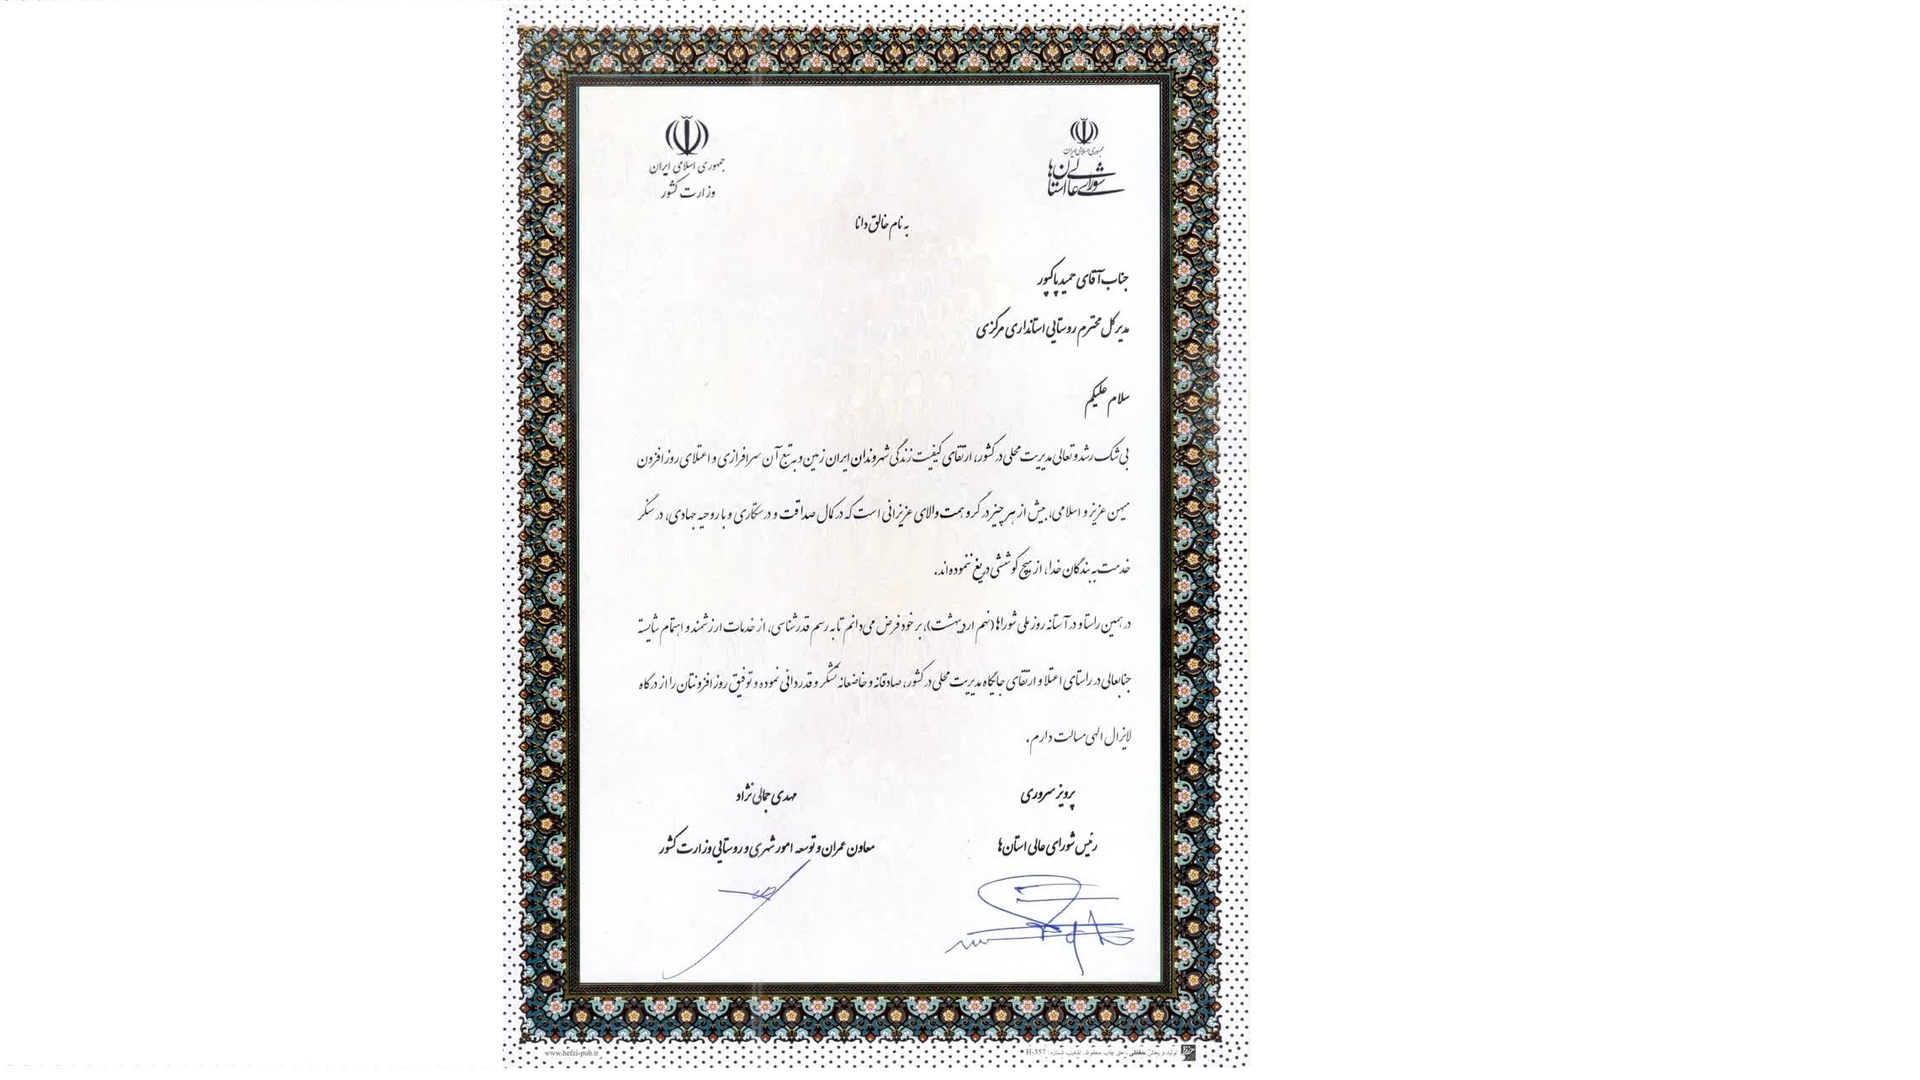 جمهوری اسلامی ایران
شورای عالی استان‌ها
جمهوری اسلامی ایران
وزارت کشور
به نام خالق دانا
جناب آقای حمید پاکپور
مدیرکل محترم روستایی استانداری مرکزی
سلام علیکم
بی شک رشد و تعالی مدیریت محلی در کشور، ارتقای کیفیت زندگی شهروندان ایران زمین و به تبع آن سرافرازی و اعتلای روزافزون
میهن عزیز و اسلامی، بیش از هر چیز در گرو همت والای عزیزانی است که در کمال صداقت و درستکاری و با روحیه جهادی، در سنگر
خدمت به بندگان خدا، از هیچ کوششی دریغ ننموده‌اند.
در همین راستا و در آستانه روز ملی شوراها (نهم اردیبهشت)، بر خود فرض می‌دانم تا به رسم قدرشناسی، از خدمات ارزشمند و اهتمام شایسته
جنابعالی در راستای اعتلا و ارتقای جایگاه مدیریت محلی در کشور، صادقانه و خاضعانه تشکر و قدردانی نموده و توفیق روزافزونتان را از درگاه
لایزال الهی مسالت دارم.
پرویز سروری
مهدی جمالی نژاد
رئیس شورای عالی استان‌ها
معاون عمران و توسعه امور شهری و روستایی وزارت کشور
تولید و پخش: حفظی، حق چاپ محفوظ. تذهیب شماره: H-357
www.hefzi-pub.ir